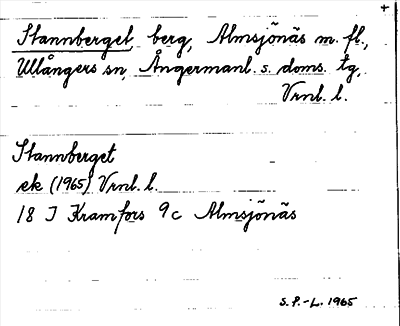 +
Stannberget, berg, Almsjönäs m. fl.,
Ullångers sn, Ångermanl. s. doms. tg,
Vrnl. l.
Stannberget
ek (1965) Vrnl. l.
18 J Kramfors 9c Almsjönäs
S.P.-L. 1965